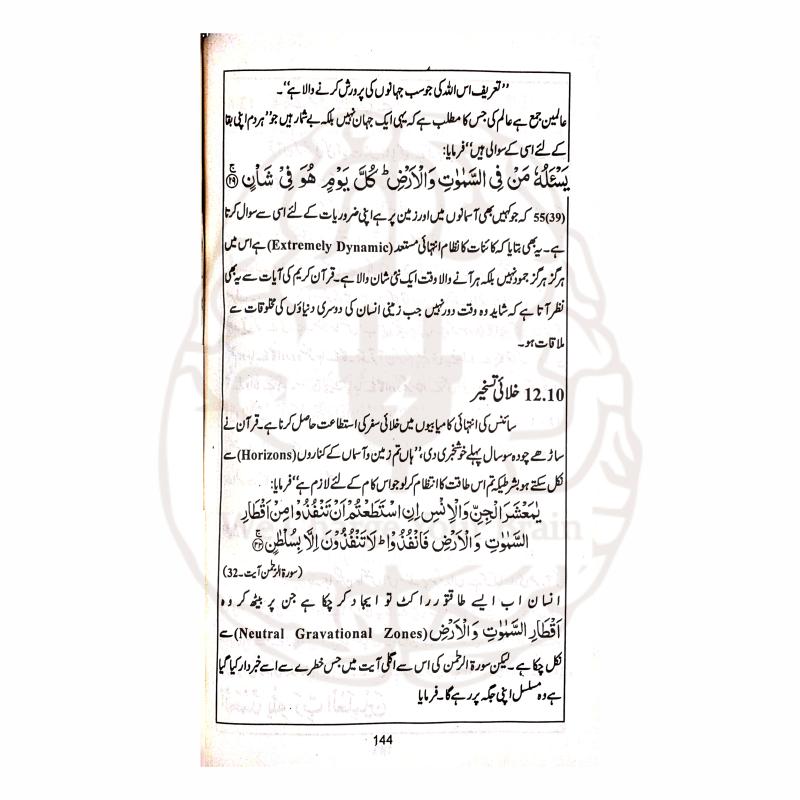 "تعریف اس اللہ کی جو سب جہانوں کی پرورش کرنے والا ہے"۔
عالمین جمع ہے عالم کی جس کا مطلب ہے کہ یہی ایک جہان نہیں بلکہ بے شمار ہیں جو "ہر دم اپنی بقا
کے لئے اسی کے سوالی ہیں" فرمایا:
یَسْئَلُهٗ مَنْ فِی السَّمٰوٰتِ وَالْاَرْضِ ؕ کُلَّ یَوْمٍ هُوَ فِیْ شَاْنٍ ۚ﴿۲۹﴾
55(39) کہ جو کہیں بھی آسمانوں میں اور زمین پر ہے اپنی ضروریات کے لئے اسی سے سوال کرتا
ہے۔ یہ بھی بتایا کہ کائنات کا نظام انتہائی مستعد (Extremely Dynamic) ہے اس میں
ہرگز ہرگز جمود نہیں بلکہ ہر آنے والا وقت ایک نئی شان والا ہے۔ قرآن کریم کی آیات سے یہ بھی
نظر آتا ہے کہ شاید وہ وقت دور نہیں جب زمینی انسان کی دوسری دنیاؤں کی مخلوقات سے
ملاقات ہو۔
12.10 خلائی تسخیر
سائنس کی انتہائی کامیابیوں میں خلائی سفر کی استطاعت حاصل کرنا ہے۔ قرآن نے
ساڑھے چودہ سو سال پہلے خوشخبری دی، "ہاں تم زمین و آسماں کے کناروں (Horizons) سے
نکل سکتے ہو بشرطیکہ تم اس طاقت کا انتظام کر لو جو اس کام کے لئے لازم ہے" فرمایا:
یٰمَعْشَرَ الْجِنِّ وَالْاِنْسِ اِنِ اسْتَطَعْتُمْ اَنْ تَنْفُذُوْا مِنْ اَقْطَارِ
السَّمٰوٰتِ وَالْاَرْضِ فَانْفُذُوْا ؕ لَا تَنْفُذُوْنَ اِلَّا بِسُلْطٰنٍ ۚ﴿۳۳﴾
(سورۃ الرحمٰن آیت۔32)
انسان اب ایسے طاقتور راکٹ تو ایجاد کر چکا ہے جن پر بیٹھ کر وہ
اَقْطَارِ السَّمٰوٰتِ وَالْاَرْضِ (Neutral Gravational Zones) سے
نکل چکا ہے۔ لیکن سورۃ الرحمٰن کی اس سے اگلی آیت میں جس خطرے سے اسے خبردار کیا گیا
ہے وہ مسلسل اپنی جگہ پر رہے گا۔ فرمایا
144